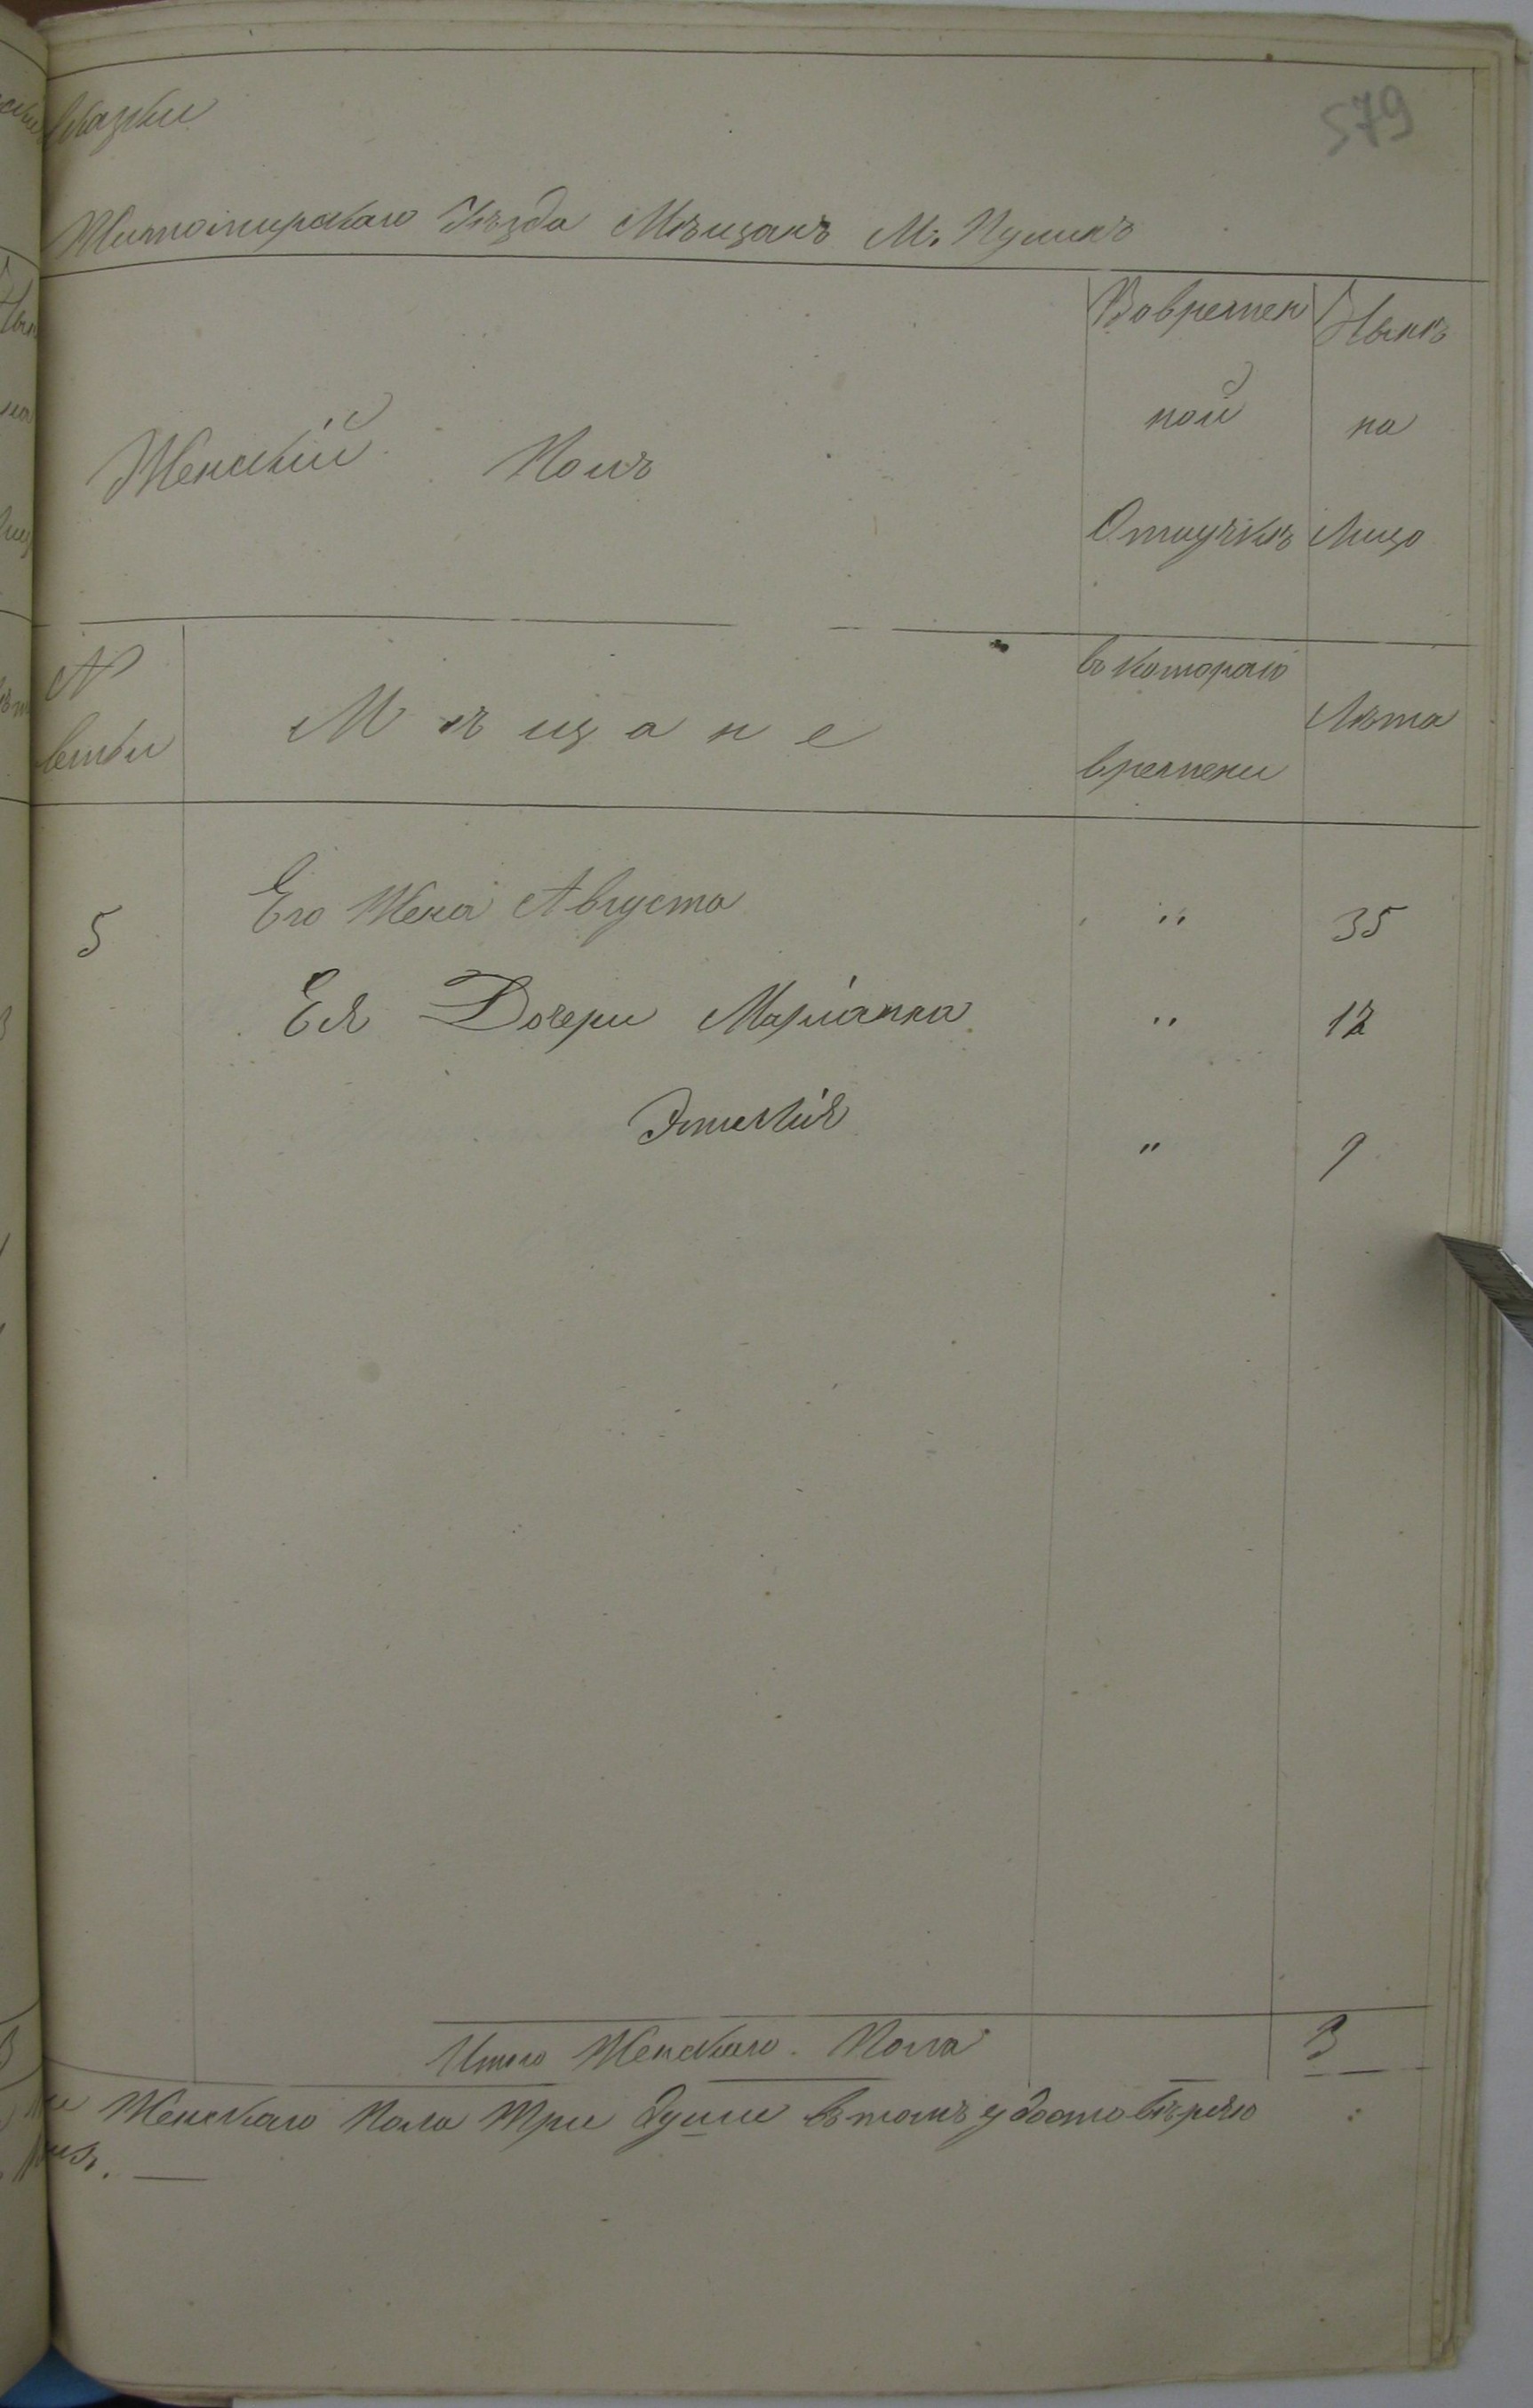 579
сказки
Житомирскаго Уѣзда Мѣщанъ М. Пулинъ
Женскій Полъ
Вовремен
ной
Отлучкѣ
Нынѣ
на
Лицо
№
семьи
Мѣщане
съ котораго
времени
Лѣта
5 Его Жена Августа " 35
Ея Дочери Маріанна " 12
Эмилія " 9
Итого Женскаго Пола 3
Женскаго Пола Три души въ томъ удостовѣряю